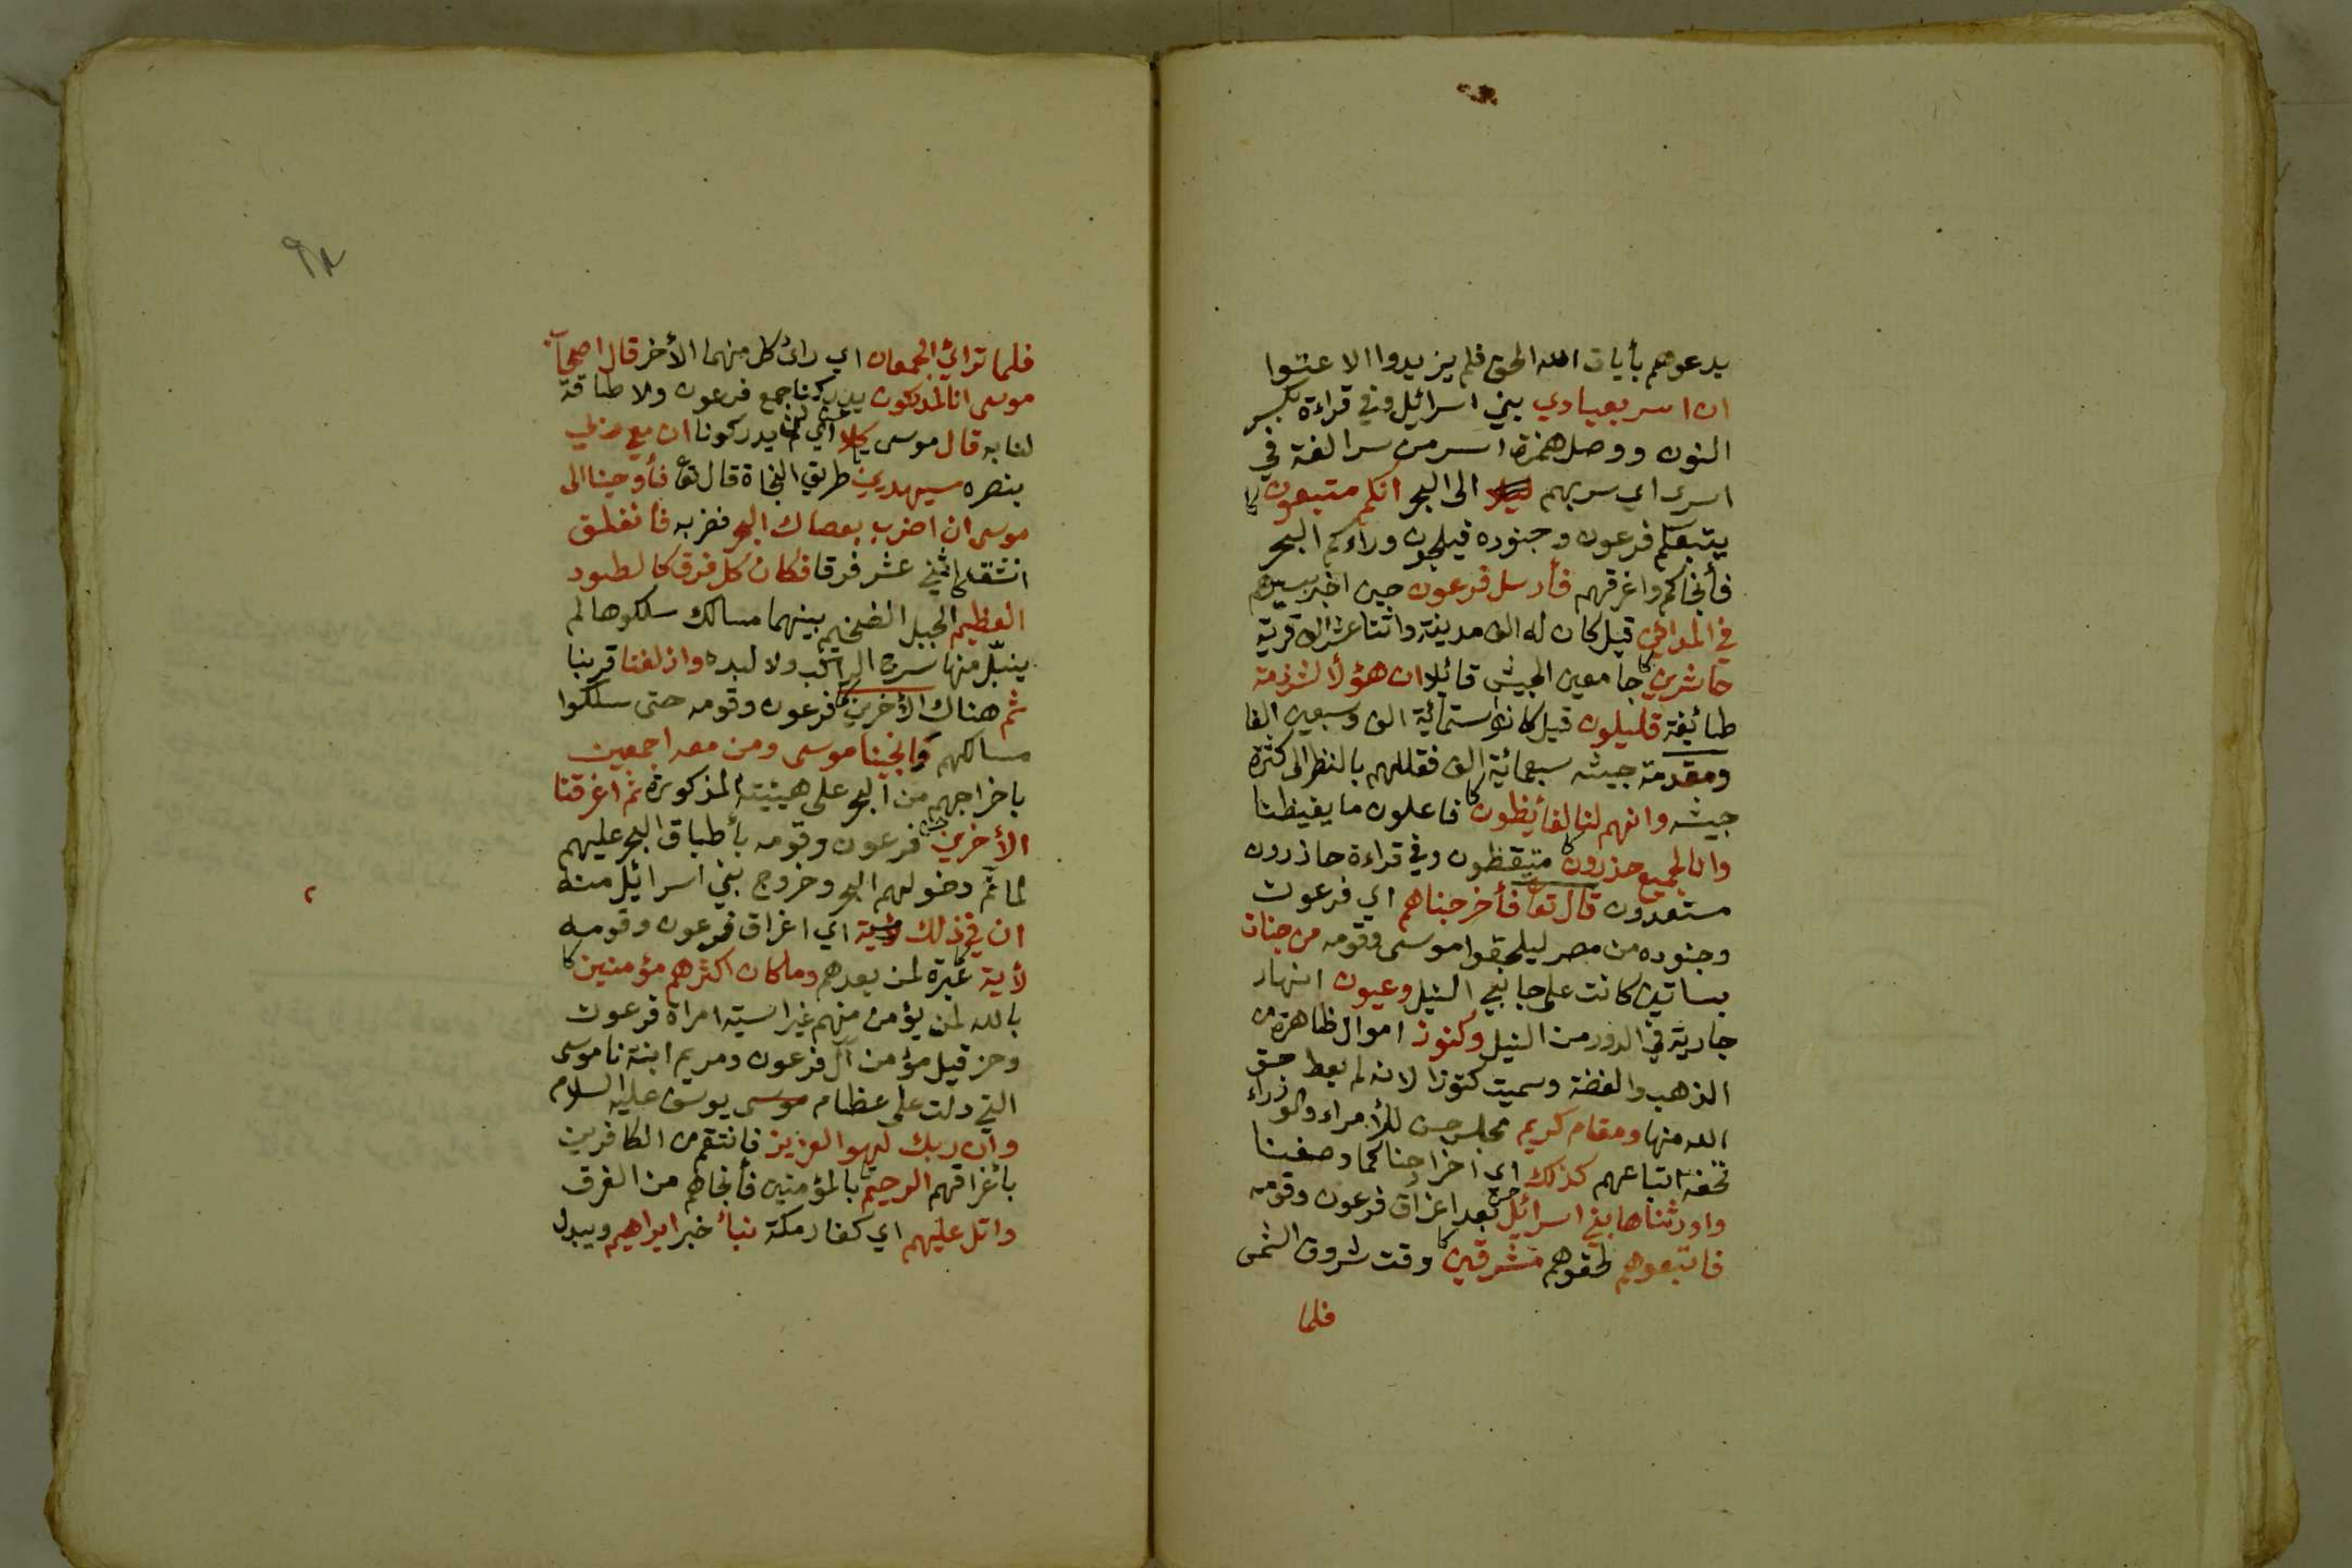 يدعوهم بأيات الله الحق فلم يزيدوا الا عتوا
ان اسر بعبادي بني اسرائيل وفي قراءة بكسر
النون ووصل همزة اسر من سرا لغة في
اسرى اي سر بهم ليلا الى البحر انكم متبعون
يتبعكم فرعون وجنوده فيلجون وراءكم البحر
فأنجاكم واغرقهم فأرسل فرعون حين اخبر بسيرهم
في المدائن قيل كان له الف مدينة واثنتا عشر الف قرية
حاشرين جامعين الجيش قائلا ان هؤلأ لشرذمة
طائيفة قليلون قيل كانوا ستمائية الف وسبعين الفا
ومقدمة جيشه سبعمائية الف فقللهم بالنظر الى كثرة
جيشه وانهم لنا لغأيظون فاعلون ما يغيظنا
وانا لجميع حذرون متيقظون وفي قراءة حاذرون
مستعدون قال تعا فأخرجناهم اي فرعون
وجنوده من مصر ليلحقوا موسى وقومه من جنات
بساتين كانت على جانبي النيل وعيون انهار
جارية في الدور من النيل وكنوز اموال ظاهرة من
الذهب والفضة وسميت كنوزا لانه لم يعط حق
الله منها ومقام كريم مجلس حسن للأمراء والوزراء
تحفه اتباعهم كذلك اي اخراجنا كما وصفنا
واورثناها بني اسرائيل بعد اغراق فرعون وقومه
فاتبعوهم لحقوهم مشرقين وقت شروق الشمس
فلما
٩٨
فلما ترائ الجمعان اي رائ كل منهما الأخر قال اصحاب
موسى انا لمدركون يدركنا جمع فرعون ولا طاقة
لنا به قال موسى كلا اي لن يدركونا ان معي ربي
بنصره سيهدين طريق النجاة قال تعا فأوحينا الى
موسى ان اضرب بعصاك البحر فضربه فانفلق
انشق اثني عشر فرقا فكان كل فرق كالطود
العظيم الجبل الضخيم بينهما مسالك سلكوها لم
يبتل منها سرج الراكب ولا لبده وازلفنا قربنا
ثم هناك الأخرين فرعون وقومه حتى سلكوا
مسالكهم وانجينا موسى ومن معه اجمعين
باخراجهم من البحر على هيئته المذكورة ثم اغرقنا
الأخرين فرعون وقومه بأطباق البحر عليهم
لما تم دخولهم البحر وخروج بني اسرائيل منه
ان في ذلك اي اغراق فرعون وقومه
لأية عبرة لمن بعدهم وما كان اكثرهم مؤمنين
بالله لمن يؤمن منهم غير اسية امراة فرعون
وحزقيل مؤمن آل فرعون ومريم ابنة ناموسى
التي دلت على عظام موسى يوسف عليه السلام
وان ربك لهو العزيز فانتقم من الكافرين
بأغراقهم الرحيم بالمؤمنين فأنجاهم من الغرق
واتل عليهم اي كفار مكة نبأ خبر ابراهيم ويبدل